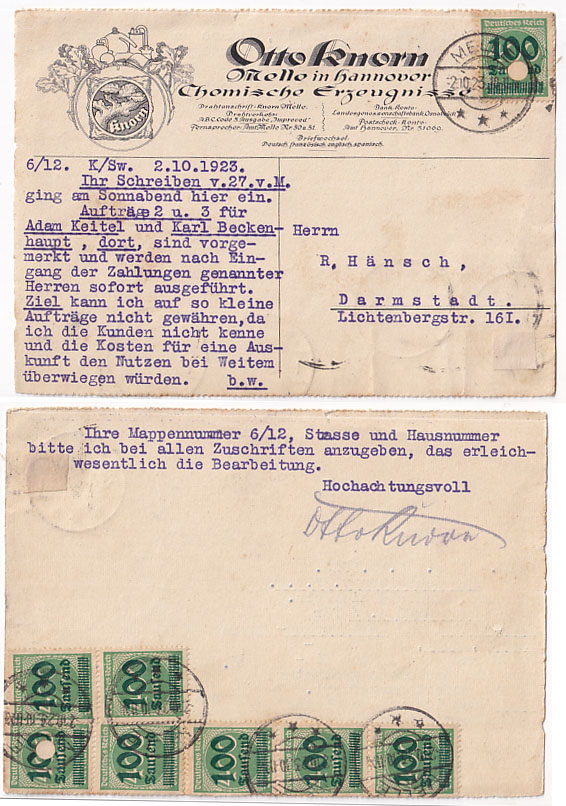 Otto Knorn
Melle in Hannover
Chemische Erzeugnisse
Knorn
Drahtanschrift: Knorn Melle.
Drahtverkehr:
A.B.C. Code 5. Ausgabe, "Improved"
Fernsprecher: Amt Melle Nr. 30 & 31.
Bank-Konto:
Landesgenossenschaftsbank, Osnabrück
Postscheck-Konto:
Amt Hannover, Nr. 31000.
Briefwechsel:
Deutsch, französisch, englisch, spanisch.
Deutsches Reich
100
Tausend
6/12. K/Sw. 2.10.1923.
Ihr Schreiben v.27.v.M.
ging am Sonnabend hier ein.
Aufträge 2 u. 3 für
Adam Keitel und Karl Becken-
haupt , dort, sind vorge-
merkt und werden nach Ein-
gang der Zahlungen genannter
Herren sofort ausgeführt.
Ziel kann ich auf so kleine
Aufträge nicht gewähren,da
ich die Kunden nicht kenne
und die Kosten für eine Aus-
kunft den Nutzen bei Weitem
überwiegen würden. b.w.
Herrn
R, Hänsch,
Darmstadt.
Lichtenbergstr. 16I.
Ihre Mappennummer 6/12, Strasse und Hausnummer
bitte ich bei allen Zuschriften anzugeben, das erleich-
wesentlich die Bearbeitung.
Hochachtungsvoll
Otto Knorn
100 Tausend
100 Tausend
100 Tausend
100 Tausend
100 Tausend
100 Tausend
100 Tausend